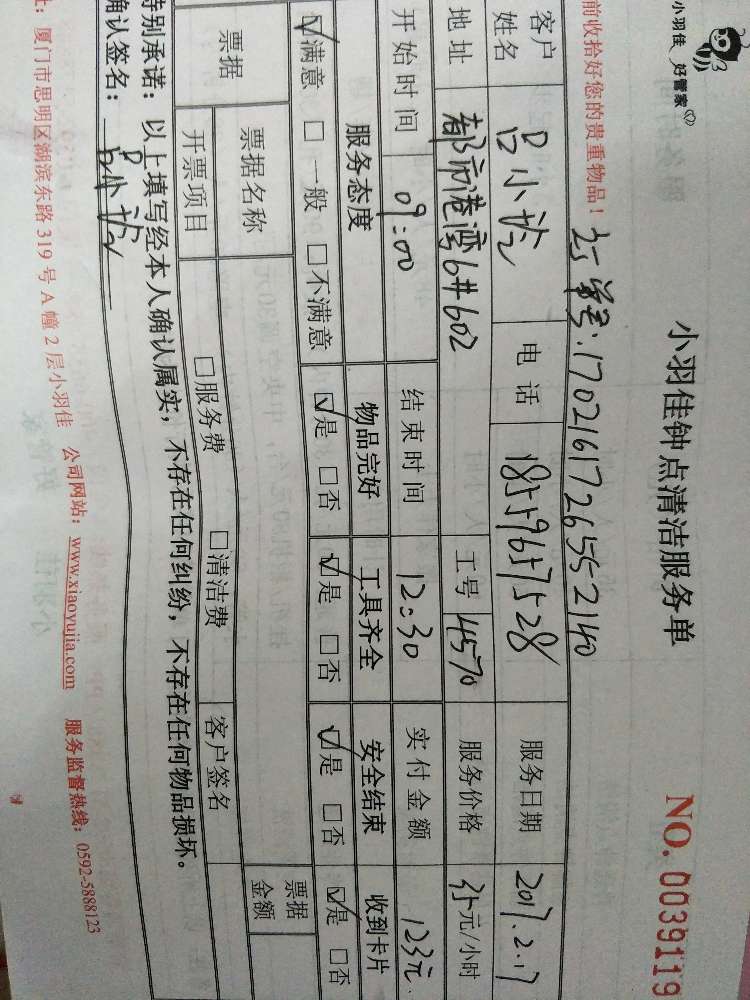 小羽佳 好管家
小羽佳钟点清洁服务单
NO. 0039119
前收拾好您的贵重物品!
单号:1702161726552140
客户姓名 吕小 电话 18559657528 服务日期 2017.2.17
地址 都市港湾6#602 工号 4570 服务价格 35元/小时
开始时间 09:00 结束时间 12:30 实付金额 123元
服务态度 物品完好 工具齐全 安全结束 收到卡片
☑满意 □一般 □不满意 ☑是 □否 ☑是 □否 ☑是 □否 ☑是 □否
票据 票据名称 票据金额
开票项目 □服务费 □清洁费 客户签名
特别承诺:以上填写经本人确认属实,不存在任何纠纷,不存在任何物品损坏。
确认签名:吕小
址:厦门市思明区湖滨东路319号A幢2层小羽佳 公司网站:www.xiaoyujia.com 服务监督热线:0592-5888123